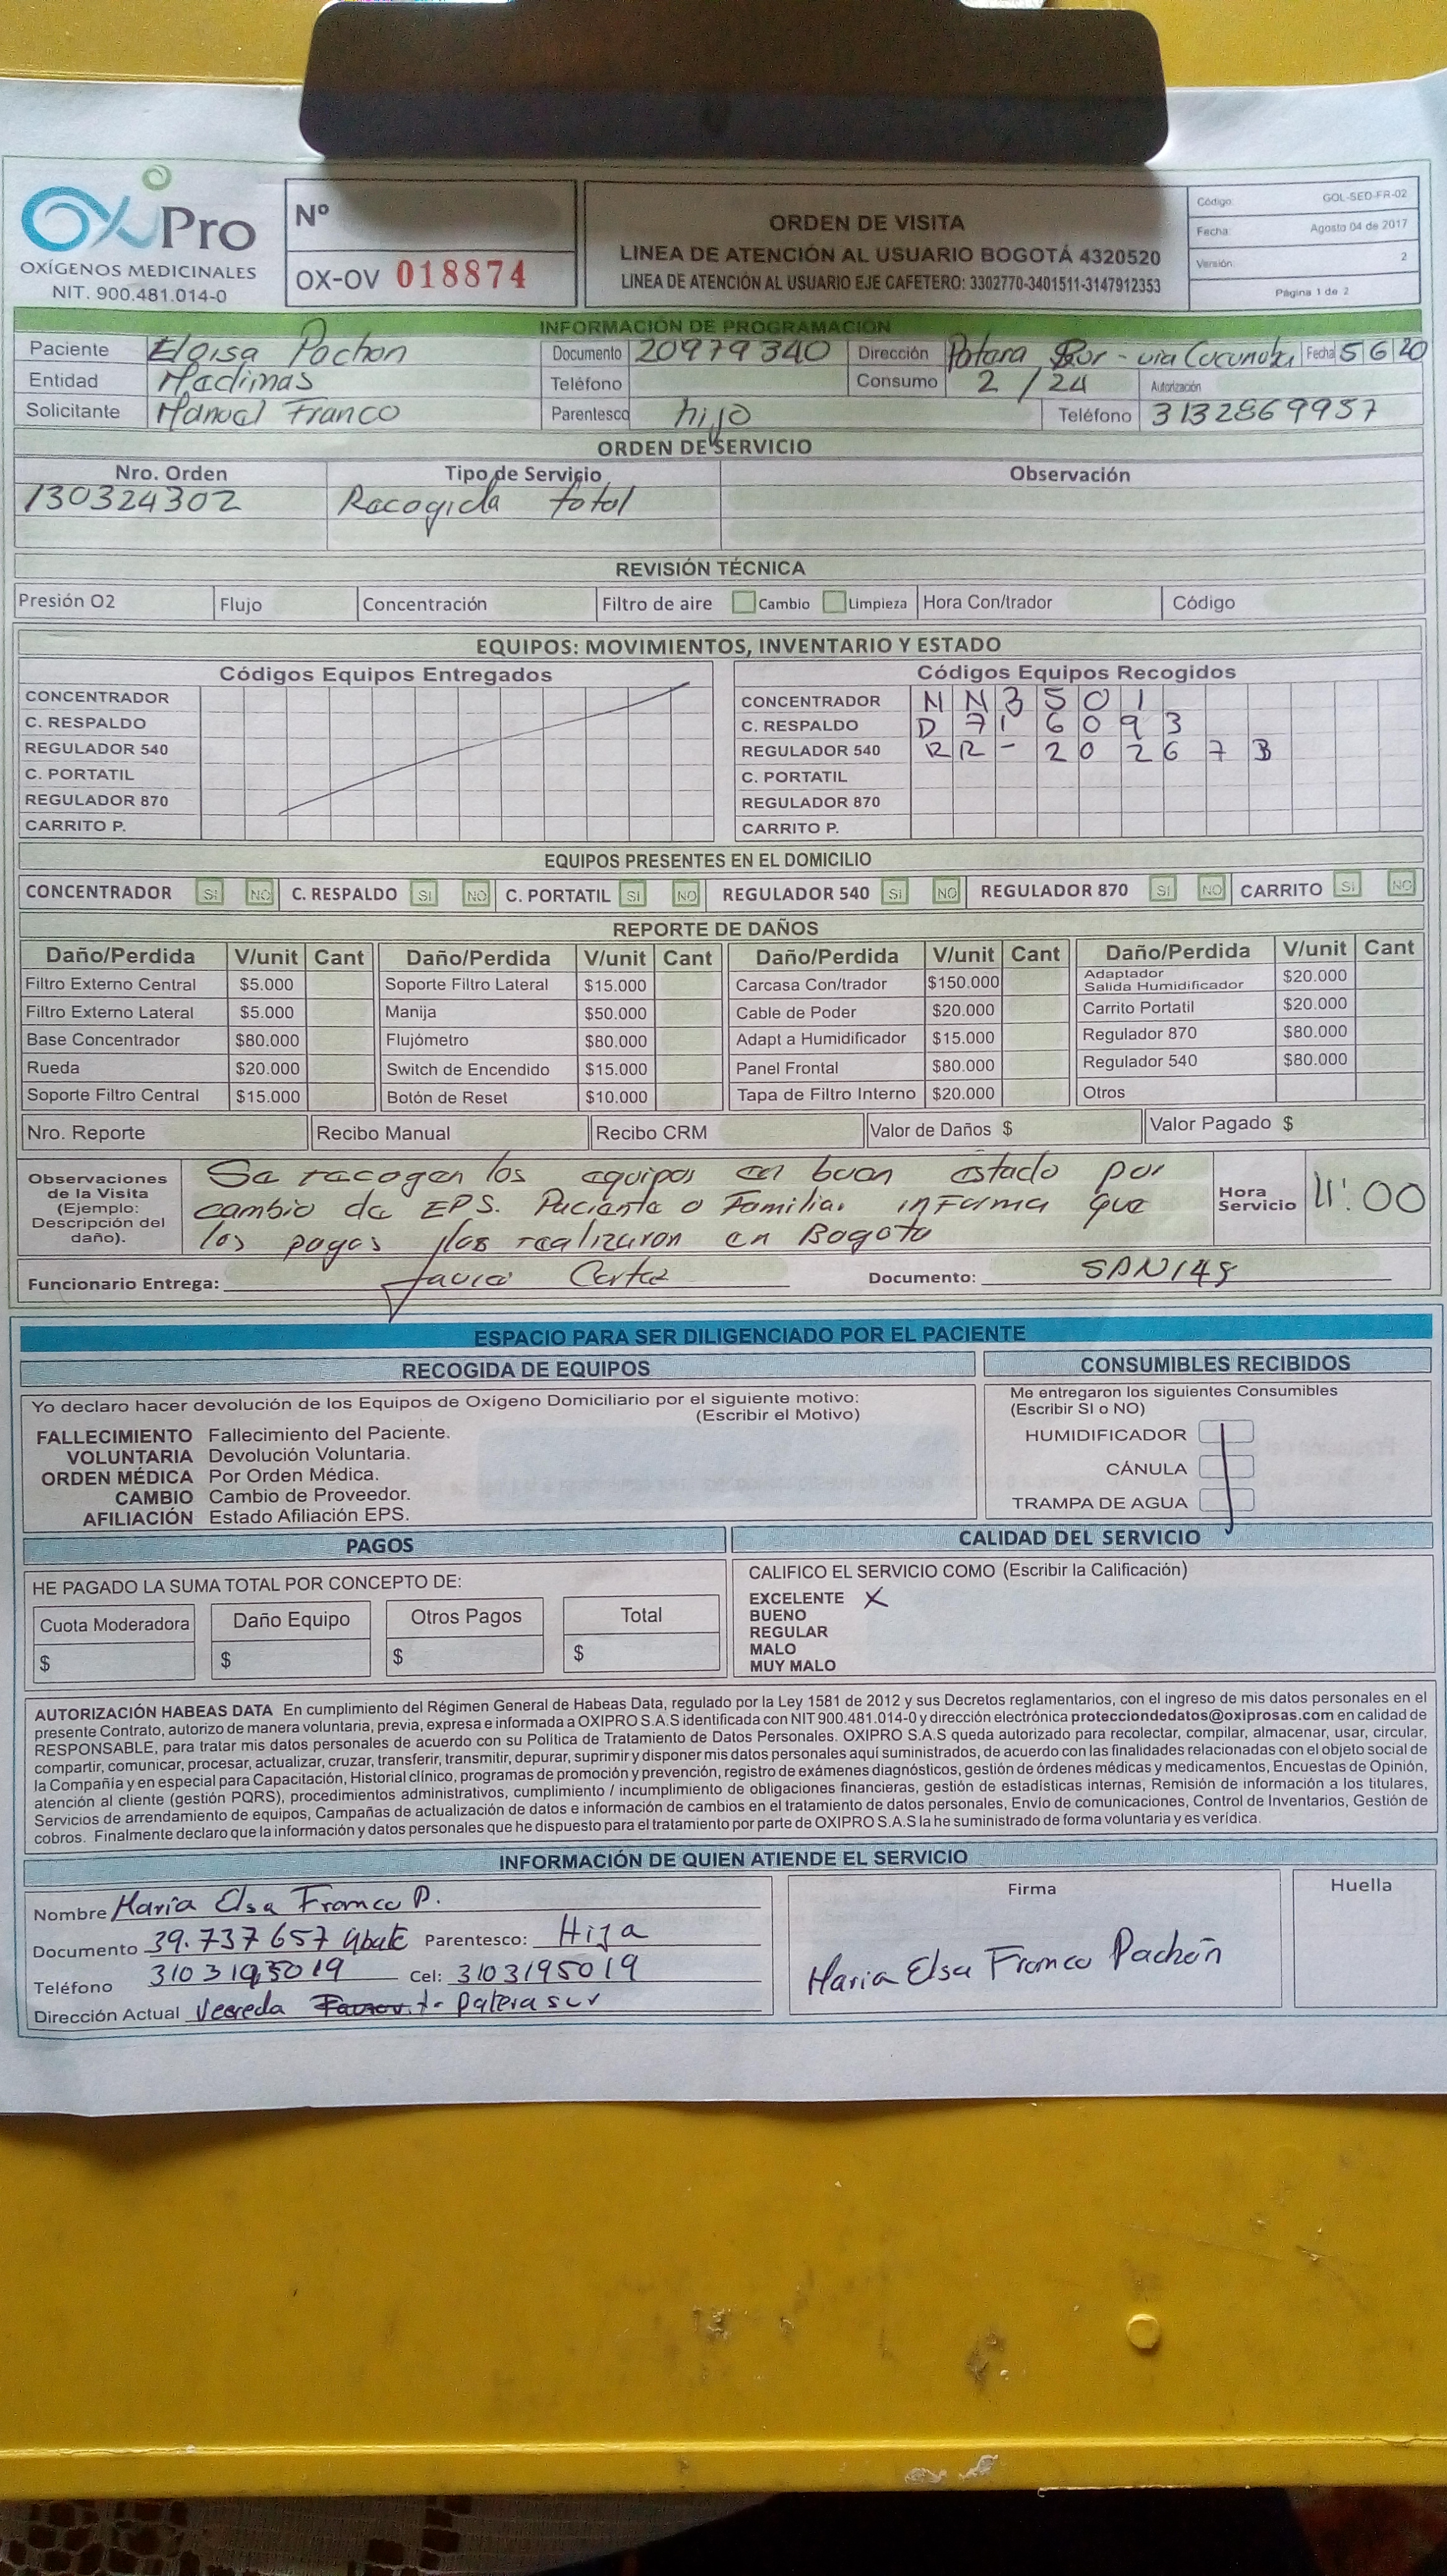 OxiPro
OXÍGENOS MEDICINALES
NIT. 900.481.014-0
Nº
OX-OV 018874
ORDEN DE VISITA
LINEA DE ATENCIÓN AL USUARIO BOGOTÁ 4320520
LINEA DE ATENCIÓN AL USUARIO EJE CAFETERO: 3302770-3401511-3147912353
Código: GOL-SED-FR-02
Fecha: Agosto 04 de 2017
Versión: 2
Página 1 de 2
INFORMACIÓN DE PROGRAMACIÓN
Paciente Eloisa Pachon Documento 20979340 Dirección Sur - via Cucunuba Fecha 5 6 20
Entidad Medimas Teléfono Consumo 2 / 24 Autorización
Solicitante Manuel Franco Parentesco hijo Teléfono 3132869957
ORDEN DE SERVICIO
Nro. Orden Tipo de Servicio Observación
130324302 Recogida total
REVISIÓN TÉCNICA
Presión O2 Flujo Concentración Filtro de aire Cambio Limpieza Hora Con/trador Código
EQUIPOS: MOVIMIENTOS, INVENTARIO Y ESTADO
Códigos Equipos Entregados Códigos Equipos Recogidos
CONCENTRADOR CONCENTRADOR NN3501
C. RESPALDO C. RESPALDO D716093
REGULADOR 540 REGULADOR 540 RR-20267B
C. PORTATIL C. PORTATIL
REGULADOR 870 REGULADOR 870
CARRITO P. CARRITO P.
EQUIPOS PRESENTES EN EL DOMICILIO
CONCENTRADOR SI NO C. RESPALDO SI NO C. PORTATIL SI NO REGULADOR 540 SI NO REGULADOR 870 SI NO CARRITO SI NO
REPORTE DE DAÑOS
Daño/Perdida V/unit Cant Daño/Perdida V/unit Cant Daño/Perdida V/unit Cant Daño/Perdida V/unit Cant
Filtro Externo Central $5.000 Soporte Filtro Lateral $15.000 Carcasa Con/trador $150.000 Adaptador Salida Humidificador $20.000
Filtro Externo Lateral $5.000 Manija $50.000 Cable de Poder $20.000 Carrito Portatil $20.000
Base Concentrador $80.000 Flujómetro $80.000 Adapt a Humidificador $15.000 Regulador 870 $80.000
Rueda $20.000 Switch de Encendido $15.000 Panel Frontal $80.000 Regulador 540 $80.000
Soporte Filtro Central $15.000 Botón de Reset $10.000 Tapa de Filtro Interno $20.000 Otros
Nro. Reporte Recibo Manual Recibo CRM Valor de Daños $ Valor Pagado $
Observaciones de la Visita (Ejemplo: Descripción del daño).
Se recogen los equipos en buen estado por
cambio de EPS. Paciente o Familiar informa que
los pagos los realizaron en Bogota
Hora Servicio 11:00
Funcionario Entrega: Javier Cortez Documento: SAN148
ESPACIO PARA SER DILIGENCIADO POR EL PACIENTE
RECOGIDA DE EQUIPOS
Yo declaro hacer devolución de los Equipos de Oxígeno Domiciliario por el siguiente motivo:
(Escribir el Motivo)
FALLECIMIENTO Fallecimiento del Paciente.
VOLUNTARIA Devolución Voluntaria.
ORDEN MÉDICA Por Orden Médica.
CAMBIO Cambio de Proveedor.
AFILIACIÓN Estado Afiliación EPS.
CONSUMIBLES RECIBIDOS
Me entregaron los siguientes Consumibles
(Escribir SI o NO)
HUMIDIFICADOR
CÁNULA
TRAMPA DE AGUA
PAGOS
HE PAGADO LA SUMA TOTAL POR CONCEPTO DE:
Cuota Moderadora Daño Equipo Otros Pagos Total
$ $ $ $
CALIDAD DEL SERVICIO
CALIFICO EL SERVICIO COMO (Escribir la Calificación)
EXCELENTE X
BUENO
REGULAR
MALO
MUY MALO
AUTORIZACIÓN HABEAS DATA En cumplimiento del Régimen General de Habeas Data, regulado por la Ley 1581 de 2012 y sus Decretos reglamentarios, con el ingreso de mis datos personales en el
presente Contrato, autorizo de manera voluntaria, previa, expresa e informada a OXIPRO S.A.S identificada con NIT 900.481.014-0 y dirección electrónica protecciondedatos@oxiprosas.com en calidad de
RESPONSABLE, para tratar mis datos personales de acuerdo con su Política de Tratamiento de Datos Personales. OXIPRO S.A.S queda autorizado para recolectar, compilar, almacenar, usar, circular,
compartir, comunicar, procesar, actualizar, cruzar, transferir, transmitir, depurar, suprimir y disponer mis datos personales aquí suministrados, de acuerdo con las finalidades relacionadas con el objeto social de
la Compañía y en especial para Capacitación, Historial clínico, programas de promoción y prevención, registro de exámenes diagnósticos, gestión de órdenes médicas y medicamentos, Encuestas de Opinión,
atención al cliente (gestión PQRS), procedimientos administrativos, cumplimiento / incumplimiento de obligaciones financieras, gestión de estadísticas internas, Remisión de información a los titulares,
Servicios de arrendamiento de equipos, Campañas de actualización de datos e información de cambios en el tratamiento de datos personales, Envío de comunicaciones, Control de Inventarios, Gestión de
cobros. Finalmente declaro que la información y datos personales que he dispuesto para el tratamiento por parte de OXIPRO S.A.S la he suministrado de forma voluntaria y es verídica.
INFORMACIÓN DE QUIEN ATIENDE EL SERVICIO
Nombre Maria Elsa Franco P.
Documento 39.737657 Ubate Parentesco: Hija
Teléfono 3103195019 Cel: 3103195019
Dirección Actual Vereda sur
Firma
Maria Elsa Franco Pachón
Huella